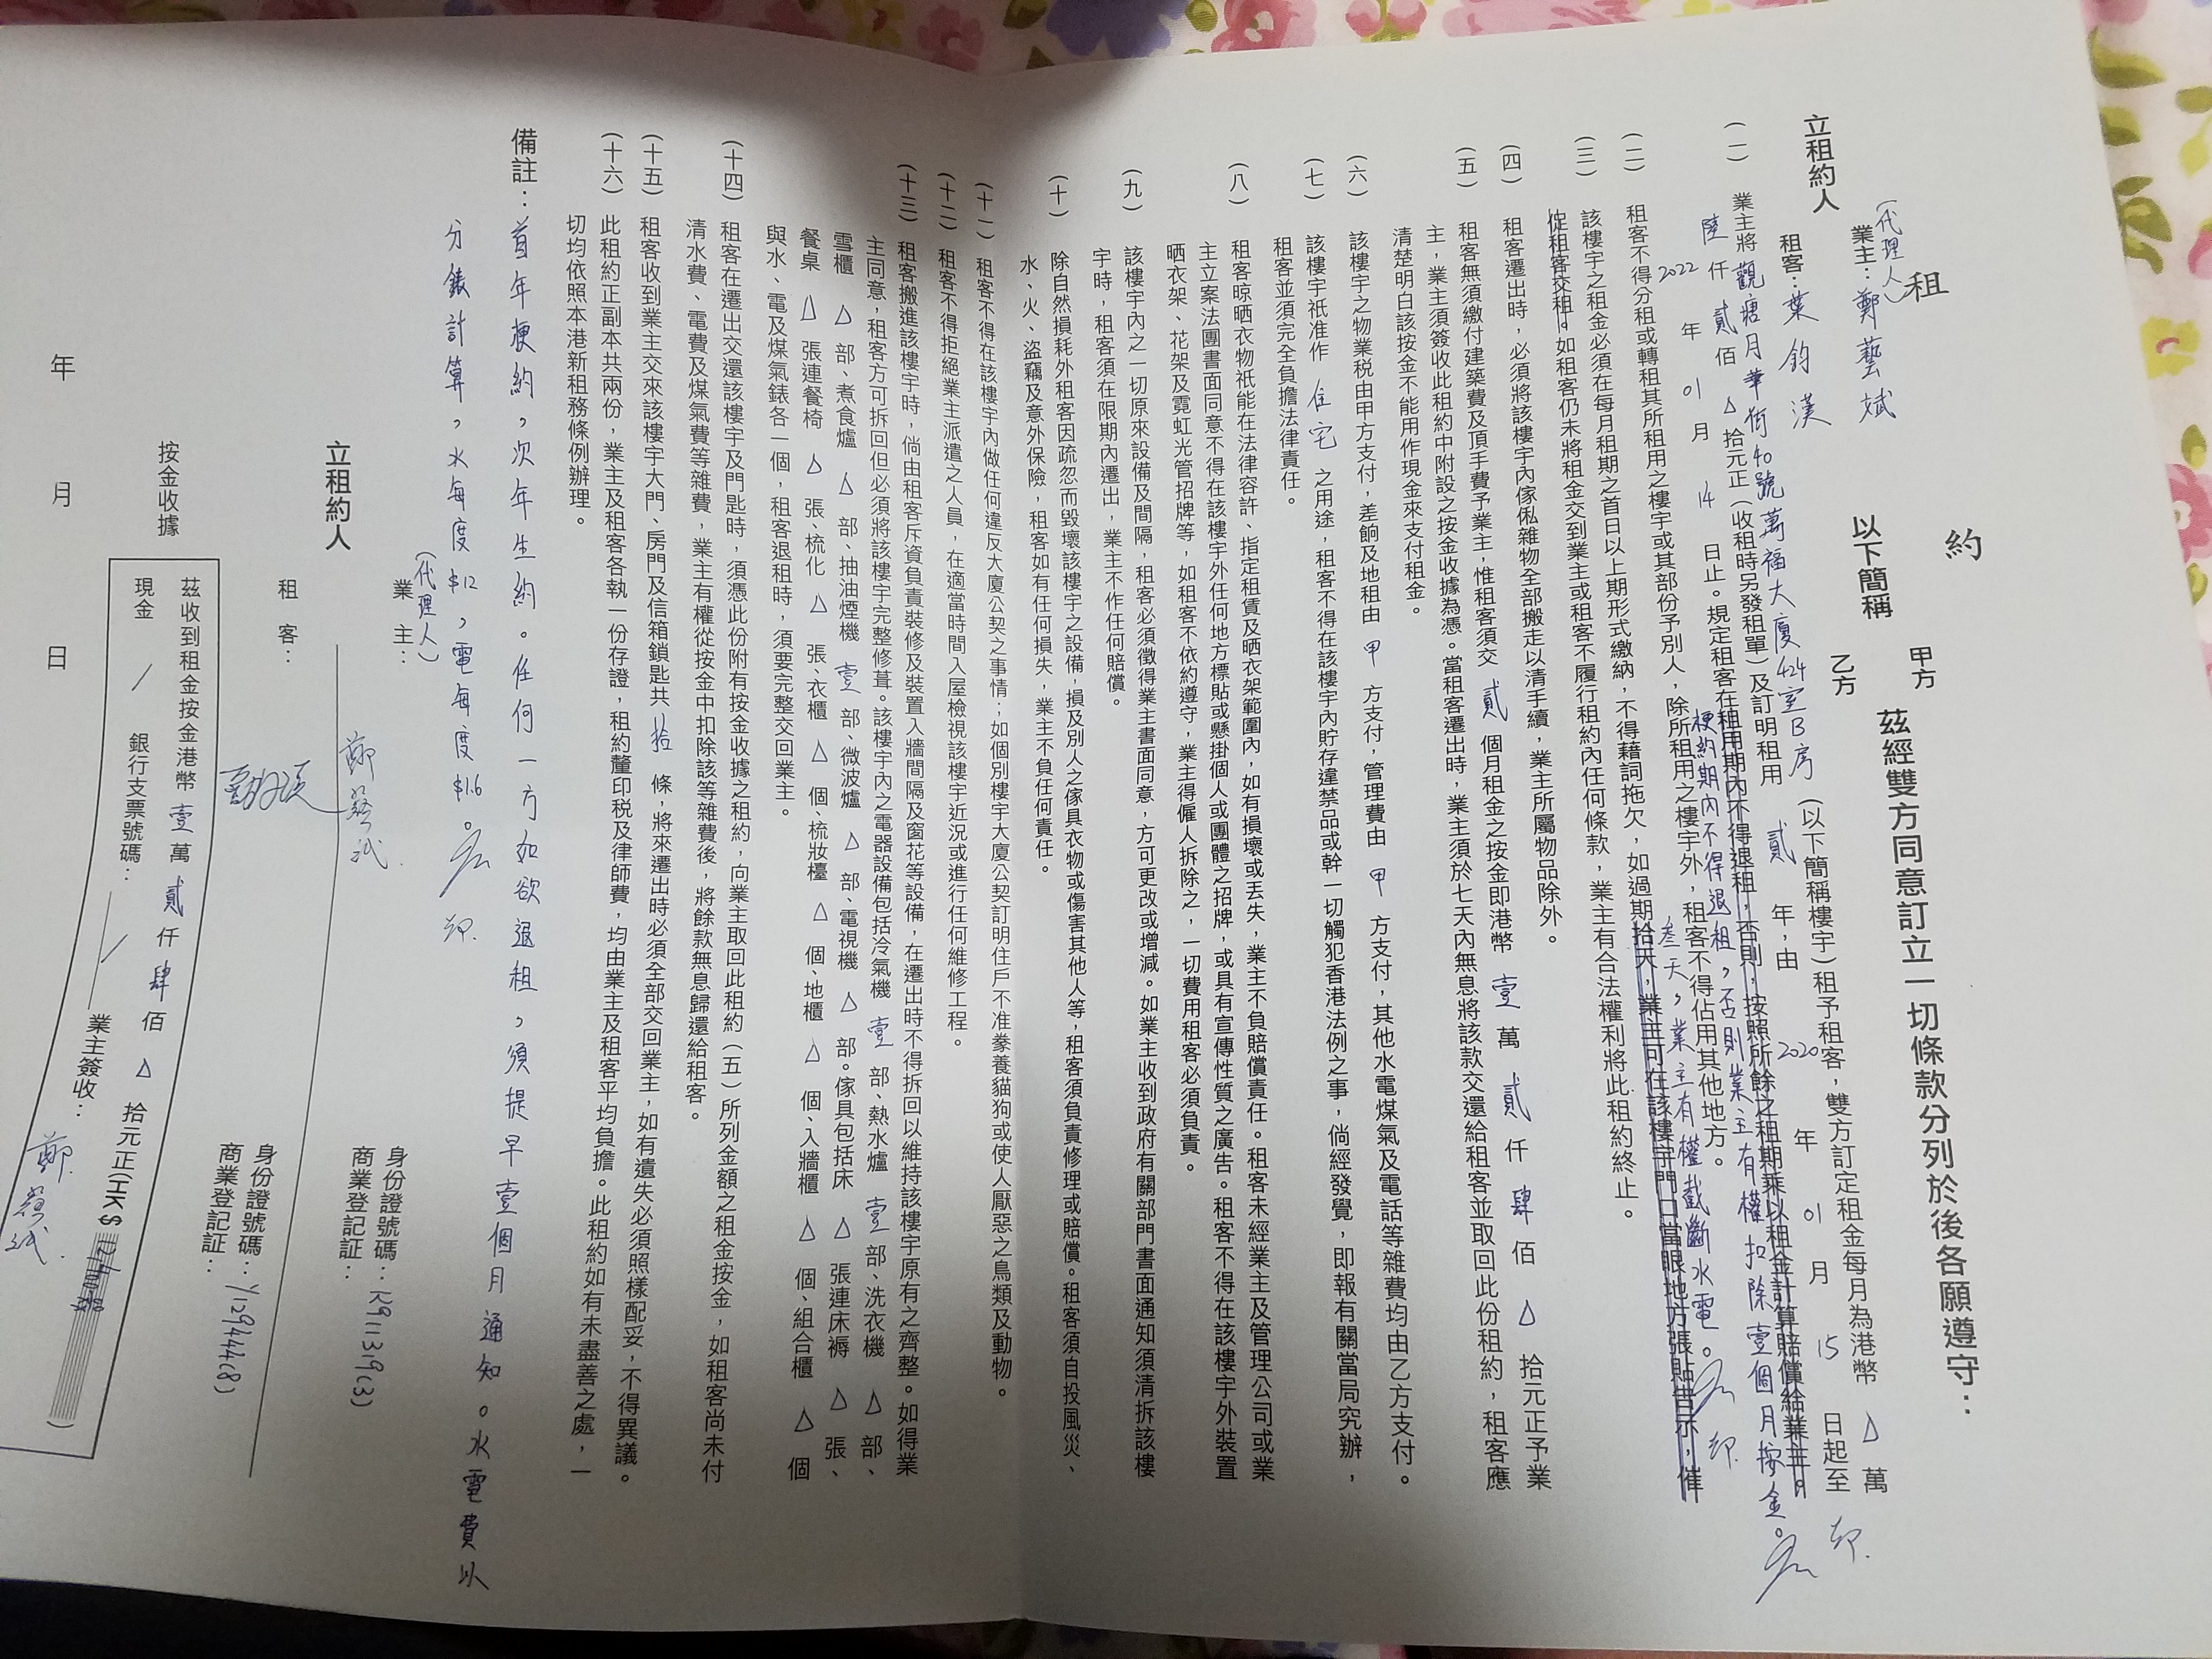 租約
立租約人
(代理人)
業主：鄭藝斌
租客：葉鈞漢
以下簡稱
甲方
乙方
茲經雙方同意訂立一切條款分列於後各願遵守：
(一) 業主將觀塘月華街40號萬福大廈424室B房(以下簡稱樓宇)租予租客，雙方訂定租金每月為港幣△萬
陸仟貳佰△拾元正(收租時另發租單)及訂明租用貳年，由2020年01月15日起至
2022年01月14日止。規定租客在租用期內不得退租，否則，按照所餘之租期乘以租金計算賠償給業主。
梗約期內不得退租，否則業主有權扣除壹個月按金。
(二) 租客不得分租或轉租其所租用之樓宇或其部份予別人，除所租用之樓宇外，租客不得佔用其他地方。
叁天，業主有權截斷水電。
(三) 該樓宇之租金必須在每月租期之首日以上期形式繳納，不得藉詞拖欠，如過期拾天，業主可在該樓宇門口當眼地方張貼告示，催
促租客交租。如租客仍未將租金交到業主或租客不履行租約內任何條款，業主有合法權利將此租約終止。
(四) 租客遷出時，必須將該樓宇內傢俬雜物全部搬走以清手續，業主所屬物品除外。
(五) 租客無須繳付建築費及頂手費予業主，惟租客須交貳個月租金之按金即港幣壹萬貳仟肆佰△拾元正予業
主，業主須簽收此租約中附設之按金收據為憑。當租客遷出時，業主須於七天內無息將該款交還給租客並取回此份租約，租客應
清楚明白該按金不能用作現金來支付租金。
(六) 該樓宇之物業税由甲方支付，差餉及地租由甲方支付，管理費由甲方支付，其他水電煤氣及電話等雜費均由乙方支付。
(七) 該樓宇祇准作住宅之用途，租客不得在該樓宇內貯存違禁品或幹一切觸犯香港法例之事，倘經發覺，即報有關當局究辦，
租客並須完全負擔法律責任。
(八) 租客晾晒衣物祇能在法律容許、指定租賃及晒衣架範圍內，如有損壞或丟失，業主不負賠償責任。租客未經業主及管理公司或業
主立案法團書面同意不得在該樓宇外任何地方標貼或懸掛個人或團體之招牌，或具有宣傳性質之廣告。租客不得在該樓宇外裝置
晒衣架、花架及霓虹光管招牌等，如租客不依約遵守，業主得僱人拆除之，一切費用租客必須負責。
(九) 該樓宇內之一切原來設備及間隔，租客必須徵得業主書面同意，方可更改或增減。如業主收到政府有關部門書面通知須清拆該樓
宇時，租客須在限期內遷出，業主不作任何賠償。
(十) 除自然損耗外租客因疏忽而毀壞該樓宇之設備，損及別人之傢具衣物或傷害其他人等，租客須負責修理或賠償。租客須自投風災、
水、火、盜竊及意外保險，租客如有任何損失，業主不負任何責任。
(十一) 租客不得在該樓宇內做任何違反大廈公契之事情；如個別樓宇大廈公契訂明住戶不准豢養貓狗或使人厭惡之鳥類及動物。
(十二) 租客不得拒絕業主派遣之人員，在適當時間入屋檢視該樓宇近況或進行任何維修工程。
(十三) 租客搬進該樓宇時，倘由租客斥資負責裝修及裝置入牆間隔及窗花等設備，在遷出時不得拆回以維持該樓宇原有之齊整。如得業
主同意，租客方可拆回但必須將該樓宇完整修葺。該樓宇內之電器設備包括冷氣機壹部、熱水爐壹部、洗衣機△部、
雪櫃△部、煮食爐△部、抽油煙機壹部、微波爐△部、電視機△部。傢具包括床△張連床褥△張、
餐桌△張連餐椅△張、梳化△張、衣櫃△個、梳妝檯△個、地櫃△個、入牆櫃△個、組合櫃△個
與水、電及煤氣錶各一個，租客退租時，須要完整交回業主。
(十四) 租客在遷出交還該樓宇及門匙時，須憑此份附有按金收據之租約，向業主取回此租約(五)所列金額之租金按金，如租客尚未付
清水費、電費及煤氣費等雜費，業主有權從按金中扣除該等雜費後，將餘款無息歸還給租客。
(十五) 租客收到業主交來該樓宇大門、房門及信箱鎖匙共拾條，將來遷出時必須全部交回業主，如有遺失必須照樣配妥，不得異議。
(十六) 此租約正副本共兩份，業主及租客各執一份存證，租約釐印税及律師費，均由業主及租客平均負擔。此租約如有未盡善之處，一
切均依照本港新租務條例辦理。
備註：首年梗約，次年生約。任何一方如欲退租，須提早壹個月通知。水電費以
分錶計算，水每度$12，電每度$1.6。
立租約人
(代理人)
業主：
身份證號碼：K911319(3)
商業登記証：
租客：
身份證號碼：Y129444(8)
商業登記証：
按金收據
茲收到租金按金港幣壹萬貳仟肆佰△拾元正(HK$12400.00)
現金／銀行支票號碼：／業主簽收：
年月日